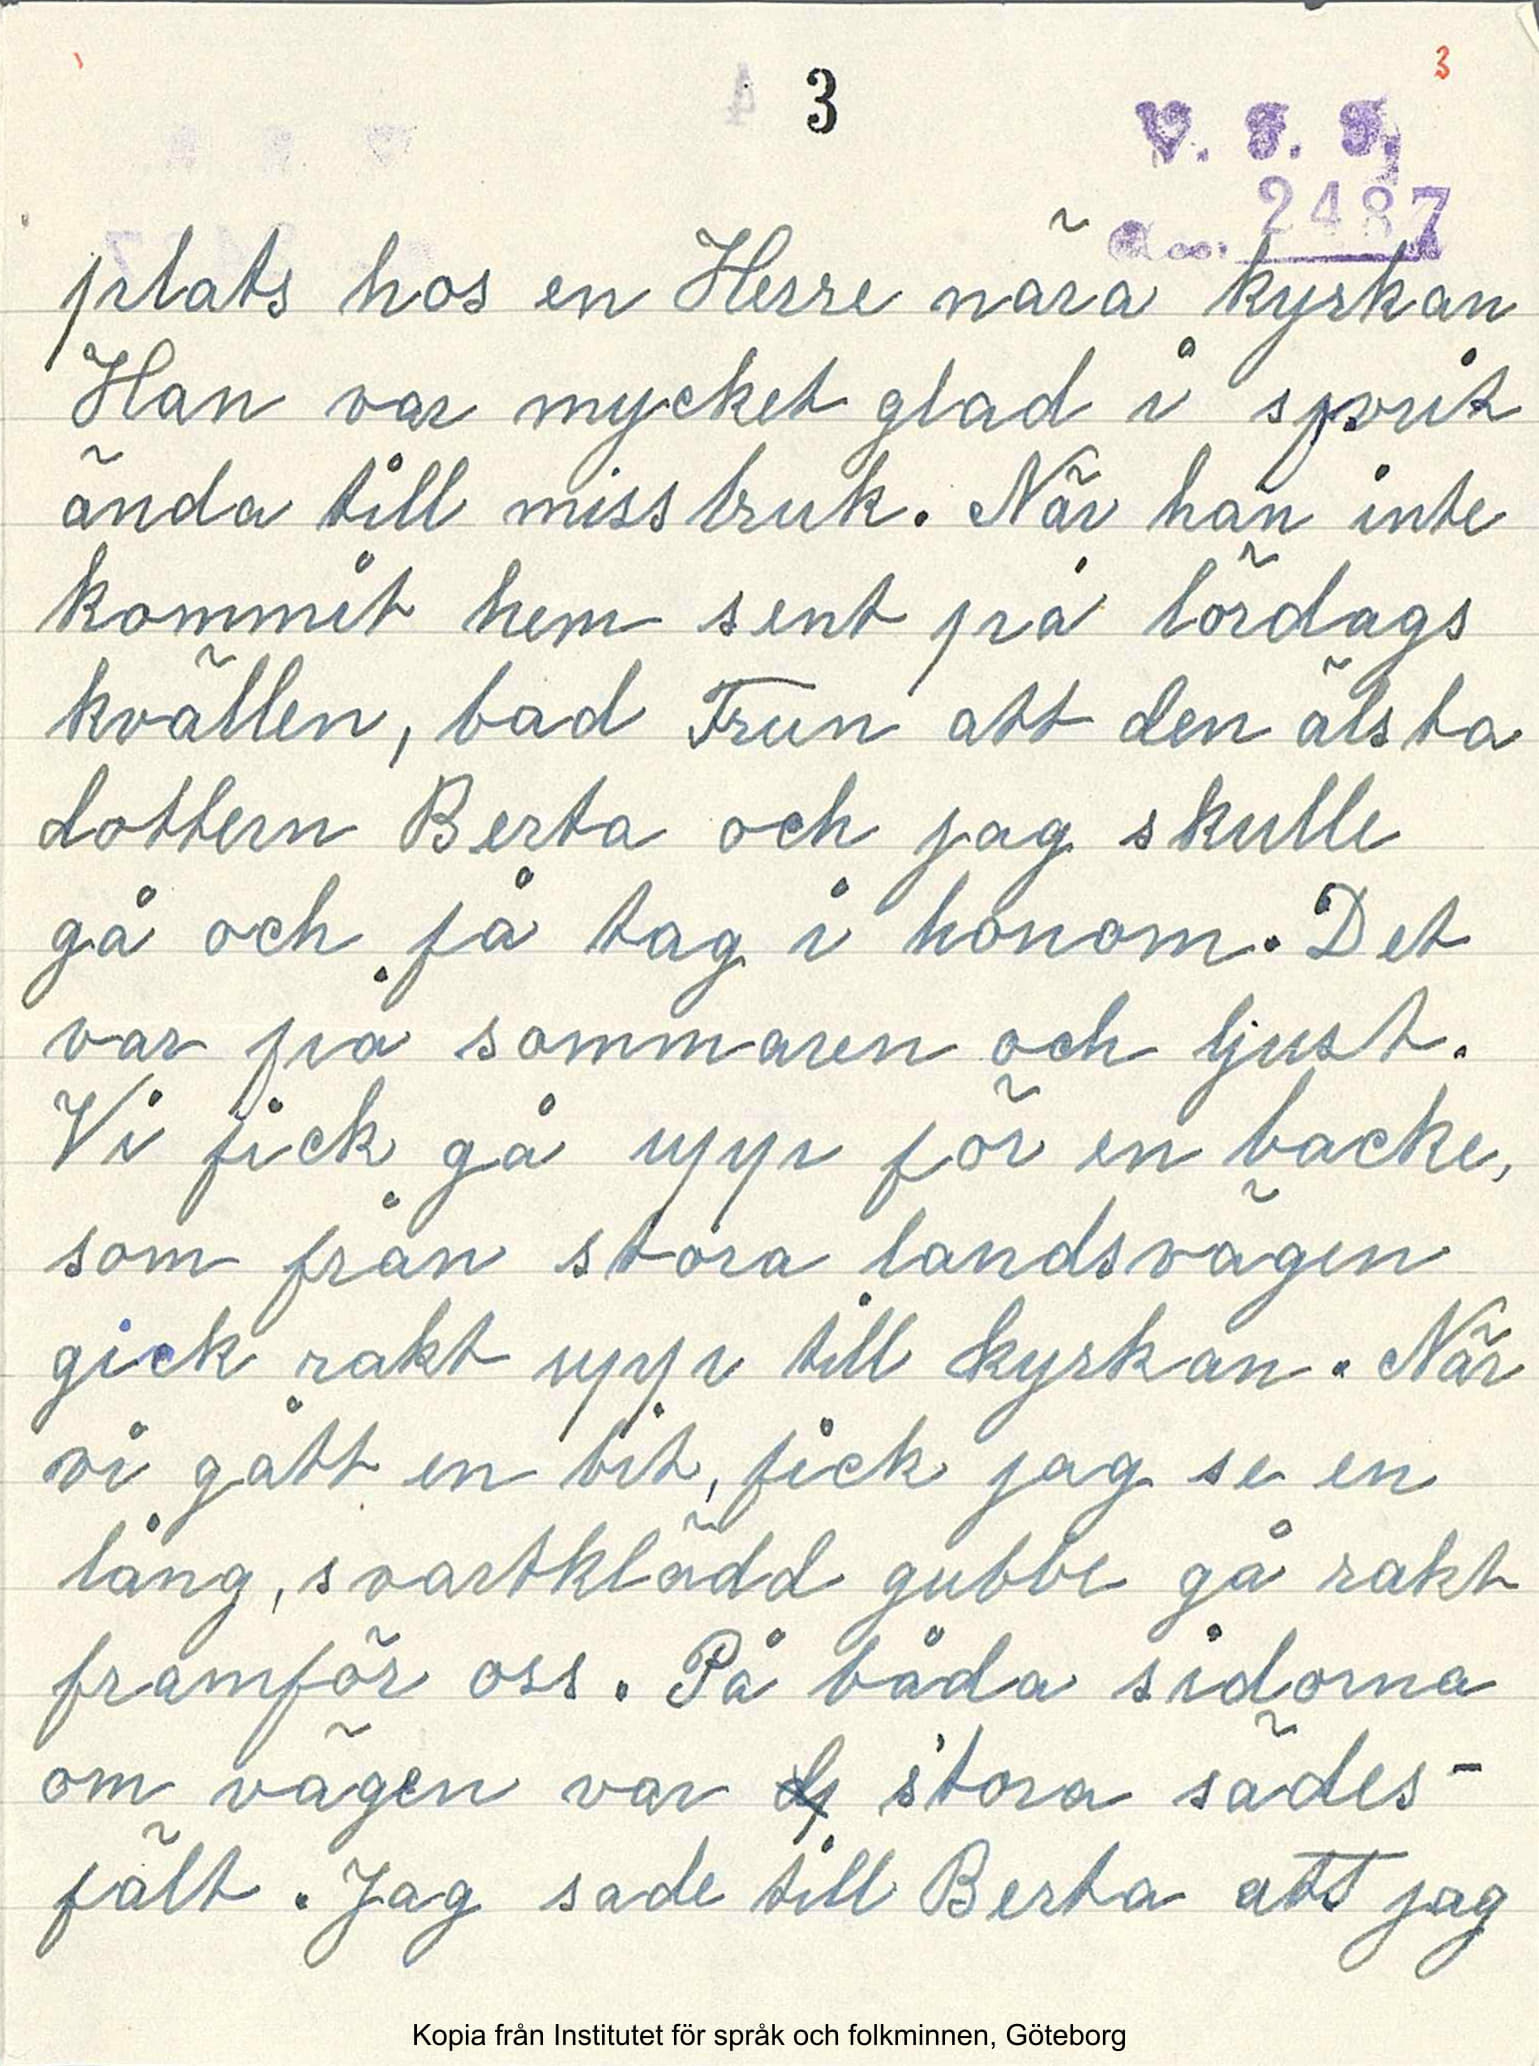 3
3
V. F. F.
Acc. 2487
plats hos en Herre nära kyrkan
Han var mycket glad i sprit
ända till missbruk. När han inte
kommit hem sent på lördags
kvällen, bad Frun att den älsta
dottern Berta och jag skulle
gå och få tag i honom. Det
var på sommaren och ljust.
Vi fick gå upp för en backe,
som från stora landsvägen
gick rakt upp till kyrkan. När
vi gått en bit, fick jag se en
lång, svartklädd gubbe gå rakt
framför oss. På båda sidorna
om vägen var stora sädes-
fält. Jag sade till Berta att jag
Kopia från Institutet för språk och folkminnen, Göteborg